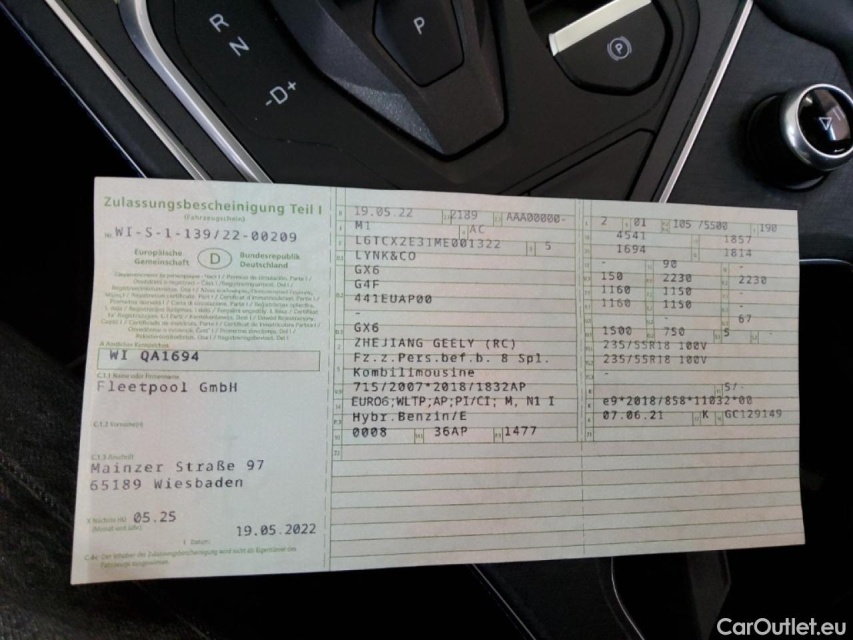 R
N
-D+
P
P
Zulassungsbescheinigung Teil I
(Fahrzeugschein)
Nr. WI-S-1-139/22-00209
Europäische Gemeinschaft
D
Bundesrepublik Deutschland
WI QA1694
C.1.1 Name oder Firmenname
Fleetpool GmbH
C.1.2 Vorname(n)
C.1.3 Anschrift
Mainzer Straße 97
65189 Wiesbaden
05.25
19.05.2022
I Datum
C.4c Der Inhaber der Zulassungsbescheinigung wird nicht als Eigentümer des Fahrzeugs ausgewiesen.
19.05.22 2189 AAA00000-
M1 AC
5
LYNK&CO
GX6
G4F
441EUAP00
-
GX6
ZHEJIANG GEELY (RC)
Fz.z.Pers.bef.b. 8 Spl.
Kombilimousine
715/2007*2018/1832AP
EURO6;WLTP;AP;PI/CI; M, N1 I
Hybr.Benzin/E
0008 36AP 1477
2 01 105 /5500 190
4541 1857
1694 1814
- 90 -
150 2230 2230
1160 1150 -
1160 1150 -
- 67
1500 750 5 -
235/55R18 100V
235/55R18 100V
-
- 5/-
e9*2018/858*11032*00
07.06.21 K GC129149
CarOutlet.eu